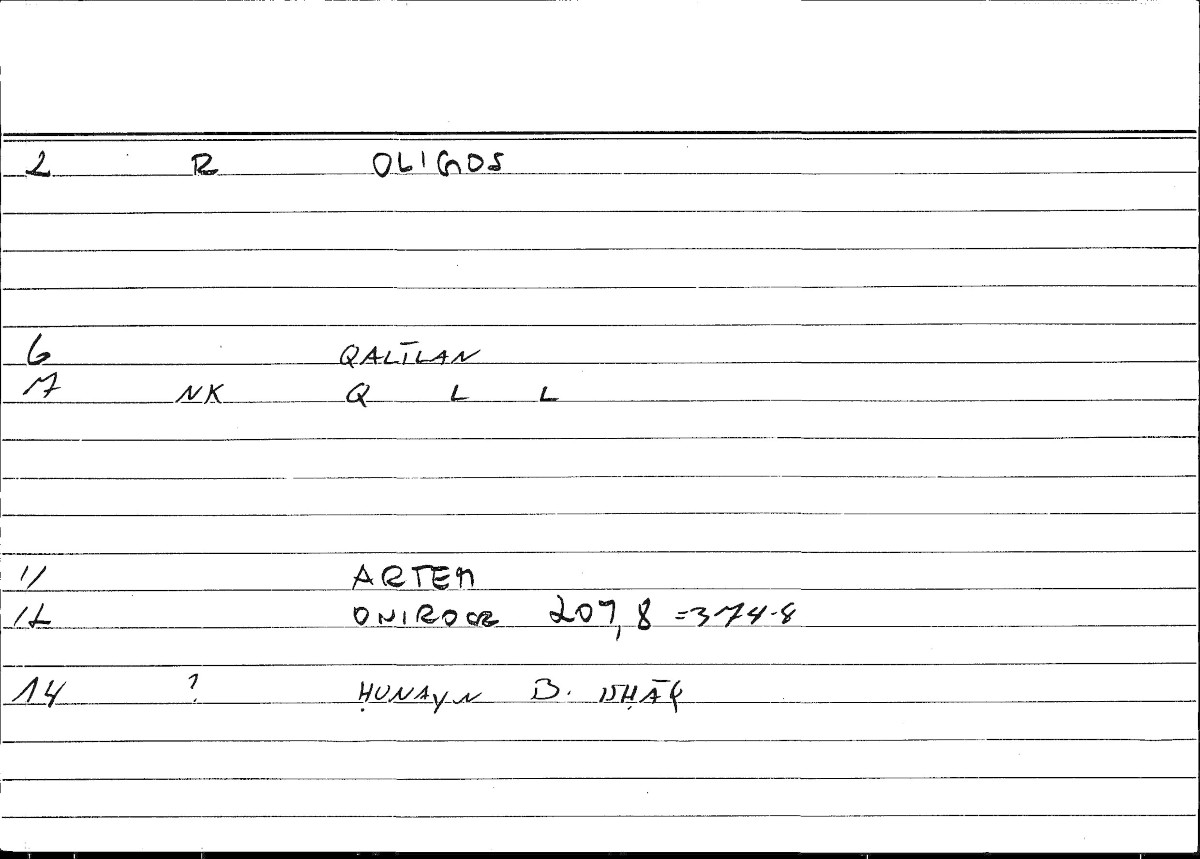 2 R OLIGOS
6 QALĪLAN
7 NK Q L L
11 ARTEM
12 ONIROCR 207,8 =374-8
14 ? ḤUNAYN B. ISḤĀQ